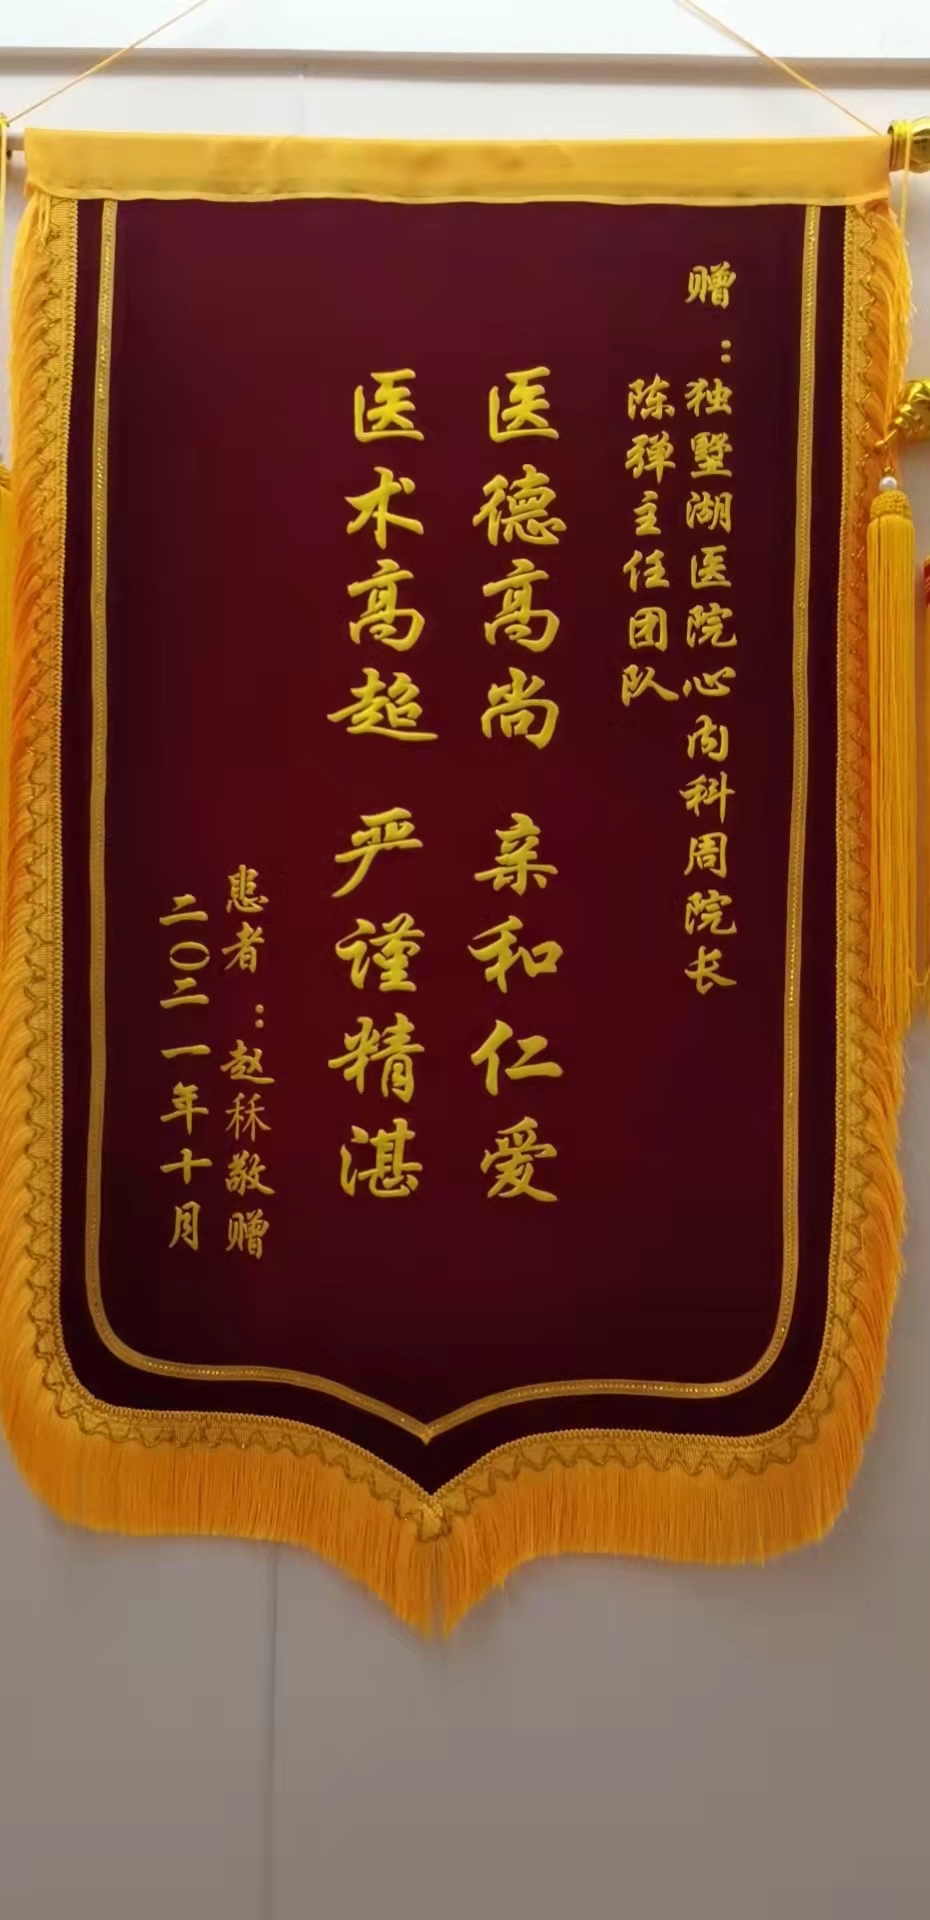 赠：独墅湖医院心内科周院长
陈弹主任团队
医德高尚 亲和仁爱
医术高超 严谨精湛
患者：赵秝敬赠
二〇二一年十月